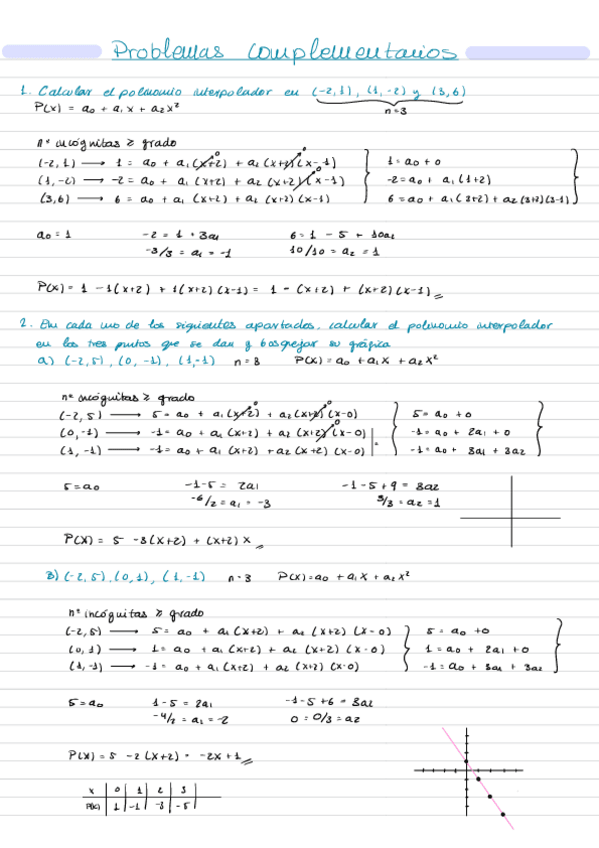 Problemas complementarios
1. Calcular el polinomio interpolador en (-2,1), (1,-2) y (3,6)
P(x) = a0 + a1x + a2x²
n=3
nº incógnitas ≥ grado
(-2,1) → 1 = a0 + a1(x+2) + a2(x+2)(x-1) 1 = a0 + 0
(1,-2) → -2 = a0 + a1(x+2) + a2(x+2)(x-1) -2 = a0 + a1(1+2)
(3,6) → 6 = a0 + a1(x+2) + a2(x+2)(x-1) 6 = a0 + a1(3+2) + a2(3+2)(3-1)
a0 = 1 -2 = 1 + 3a1 6 = 1 - 5 + 10a2
-3/3 = a1 = -1 10/10 = a2 = 1
P(x) = 1 - 1(x+2) + 1(x+2)(x-1) = 1 - (x+2) + (x+2)(x-1)
2. En cada uno de los siguientes apartados, calcular el polinomio interpolador
en los tres puntos que se dan y bosquejar su gráfica
a) (-2,5), (0,-1), (1,-1) n=3 P(x) = a0 + a1x + a2x²
nº incógnitas ≥ grado
(-2,5) → 5 = a0 + a1(x+2) + a2(x+2)(x-0) 5 = a0 + 0
(0,-1) → -1 = a0 + a1(x+2) + a2(x+2)(x-0) -1 = a0 + 2a1 + 0
(1,-1) → -1 = a0 + a1(x+2) + a2(x+2)(x-0) -1 = a0 + 3a1 + 3a2
5 = a0 -1-5 = 2a1 -1-5+9 = 3a2
-6/2 = a1 = -3 3/3 = a2 = 1
P(x) = 5 - 3(x+2) + (x+2)x
B) (-2,5), (0,1), (1,-1) n=3 P(x) = a0 + a1x + a2x²
nº incógnitas ≥ grado
(-2,5) → 5 = a0 + a1(x+2) + a2(x+2)(x-0) 5 = a0 + 0
(0,1) → 1 = a0 + a1(x+2) + a2(x+2)(x-0) 1 = a0 + 2a1 + 0
(1,-1) → -1 = a0 + a1(x+2) + a2(x+2)(x-0) -1 = a0 + 3a1 + 3a2
5 = a0 1-5 = 2a1 -1-5+6 = 3a2
-4/2 = a1 = -2 0 = 0/3 = a2
P(x) = 5 - 2(x+2) = -2x+1
x 0 1 2 3
P(x) 1 -1 -3 -5